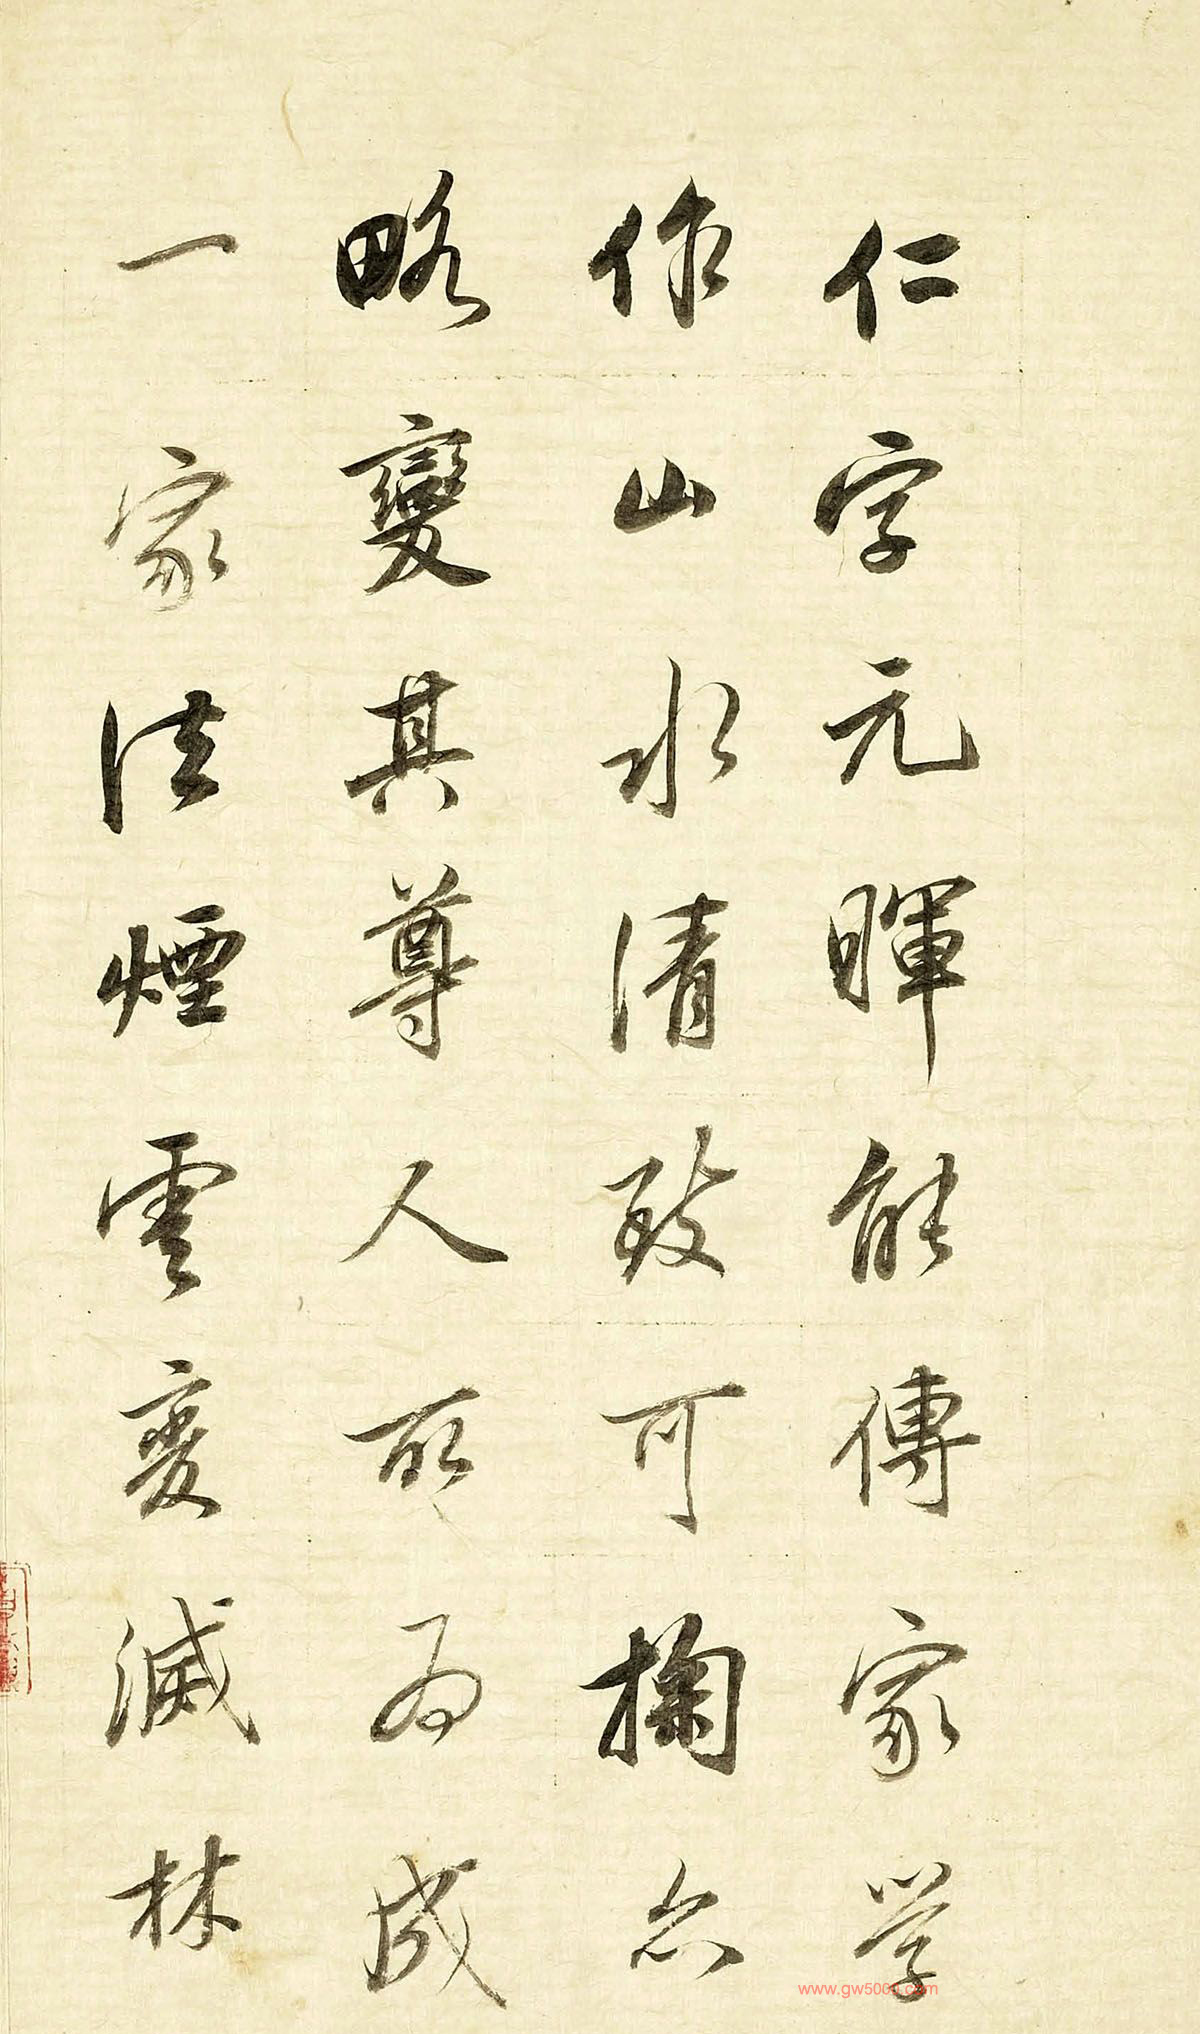 仁字元暉能傳家學
作山水清致可掬亦
略變其尊人所為成
一家法煙雲變滅林
www.gw5000.com